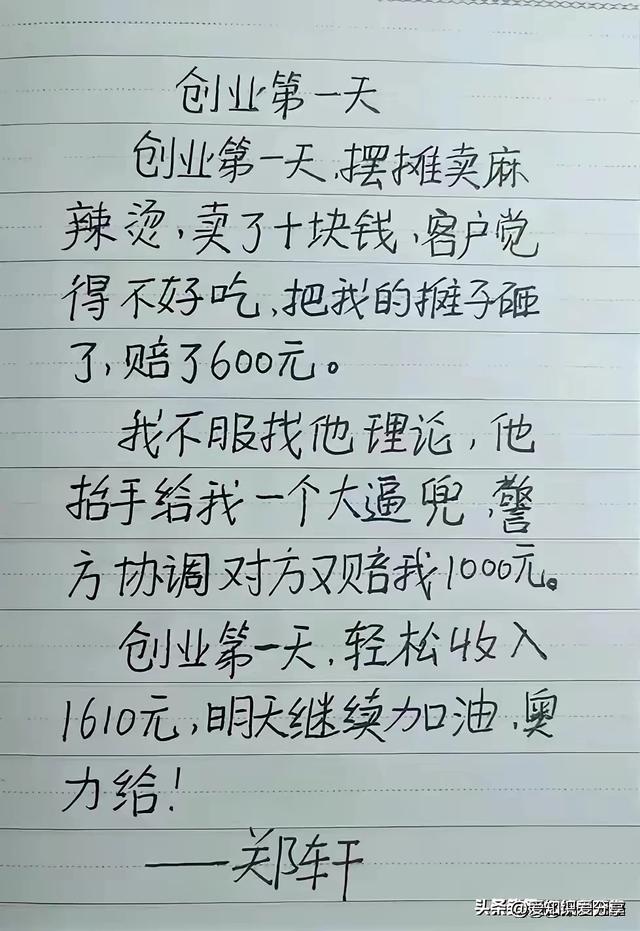 创业第一天
创业第一天,摆摊卖麻
辣烫,卖了十块钱,客户觉
得不好吃,把我的摊子砸
了,赔了600元。
我不服找他理论,他
抬手给我一个大逼兜,警
方协调对方又赔我1000元。
创业第一天,轻松收入
1610元,明天继续加油,奥
力给!
——郑轩
头条@爱知识爱分享